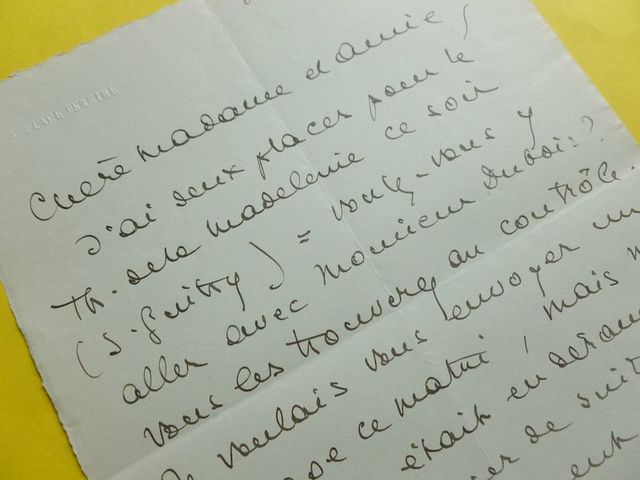 Chère madame et amie,
J'ai deux places pour le
Th. de la Madeleine ce soir
(S. Guitry) = voulez-vous y
aller avec monsieur Dubois?
Vous les trouverez au contrôle.
voulais vous envoyer un
ce matin, mais
était en
de suite